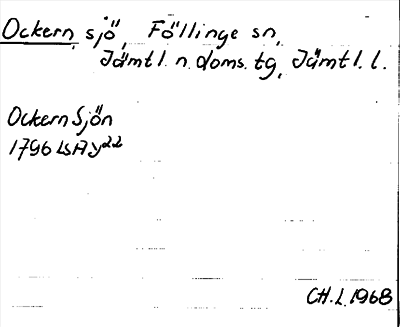 Ockern, sjö, Föllinge sn,
Jämtl. n. doms. tg, Jämtl. l.
Ockern Sjön
1796 LSA y22
CH. L. 1968